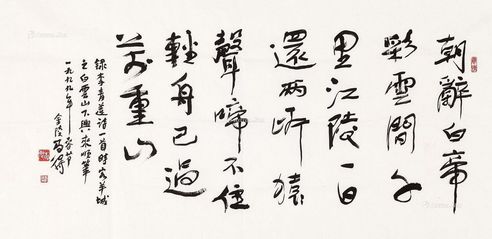 朝辭白帝
彩雲間千
里江陵一日
還兩岸猿
聲啼不住
輕舟已過
萬重山
錄李青蓮詩一首時客羊城
之白雲山下興來順筆
一九九九年春節
金陵馬得